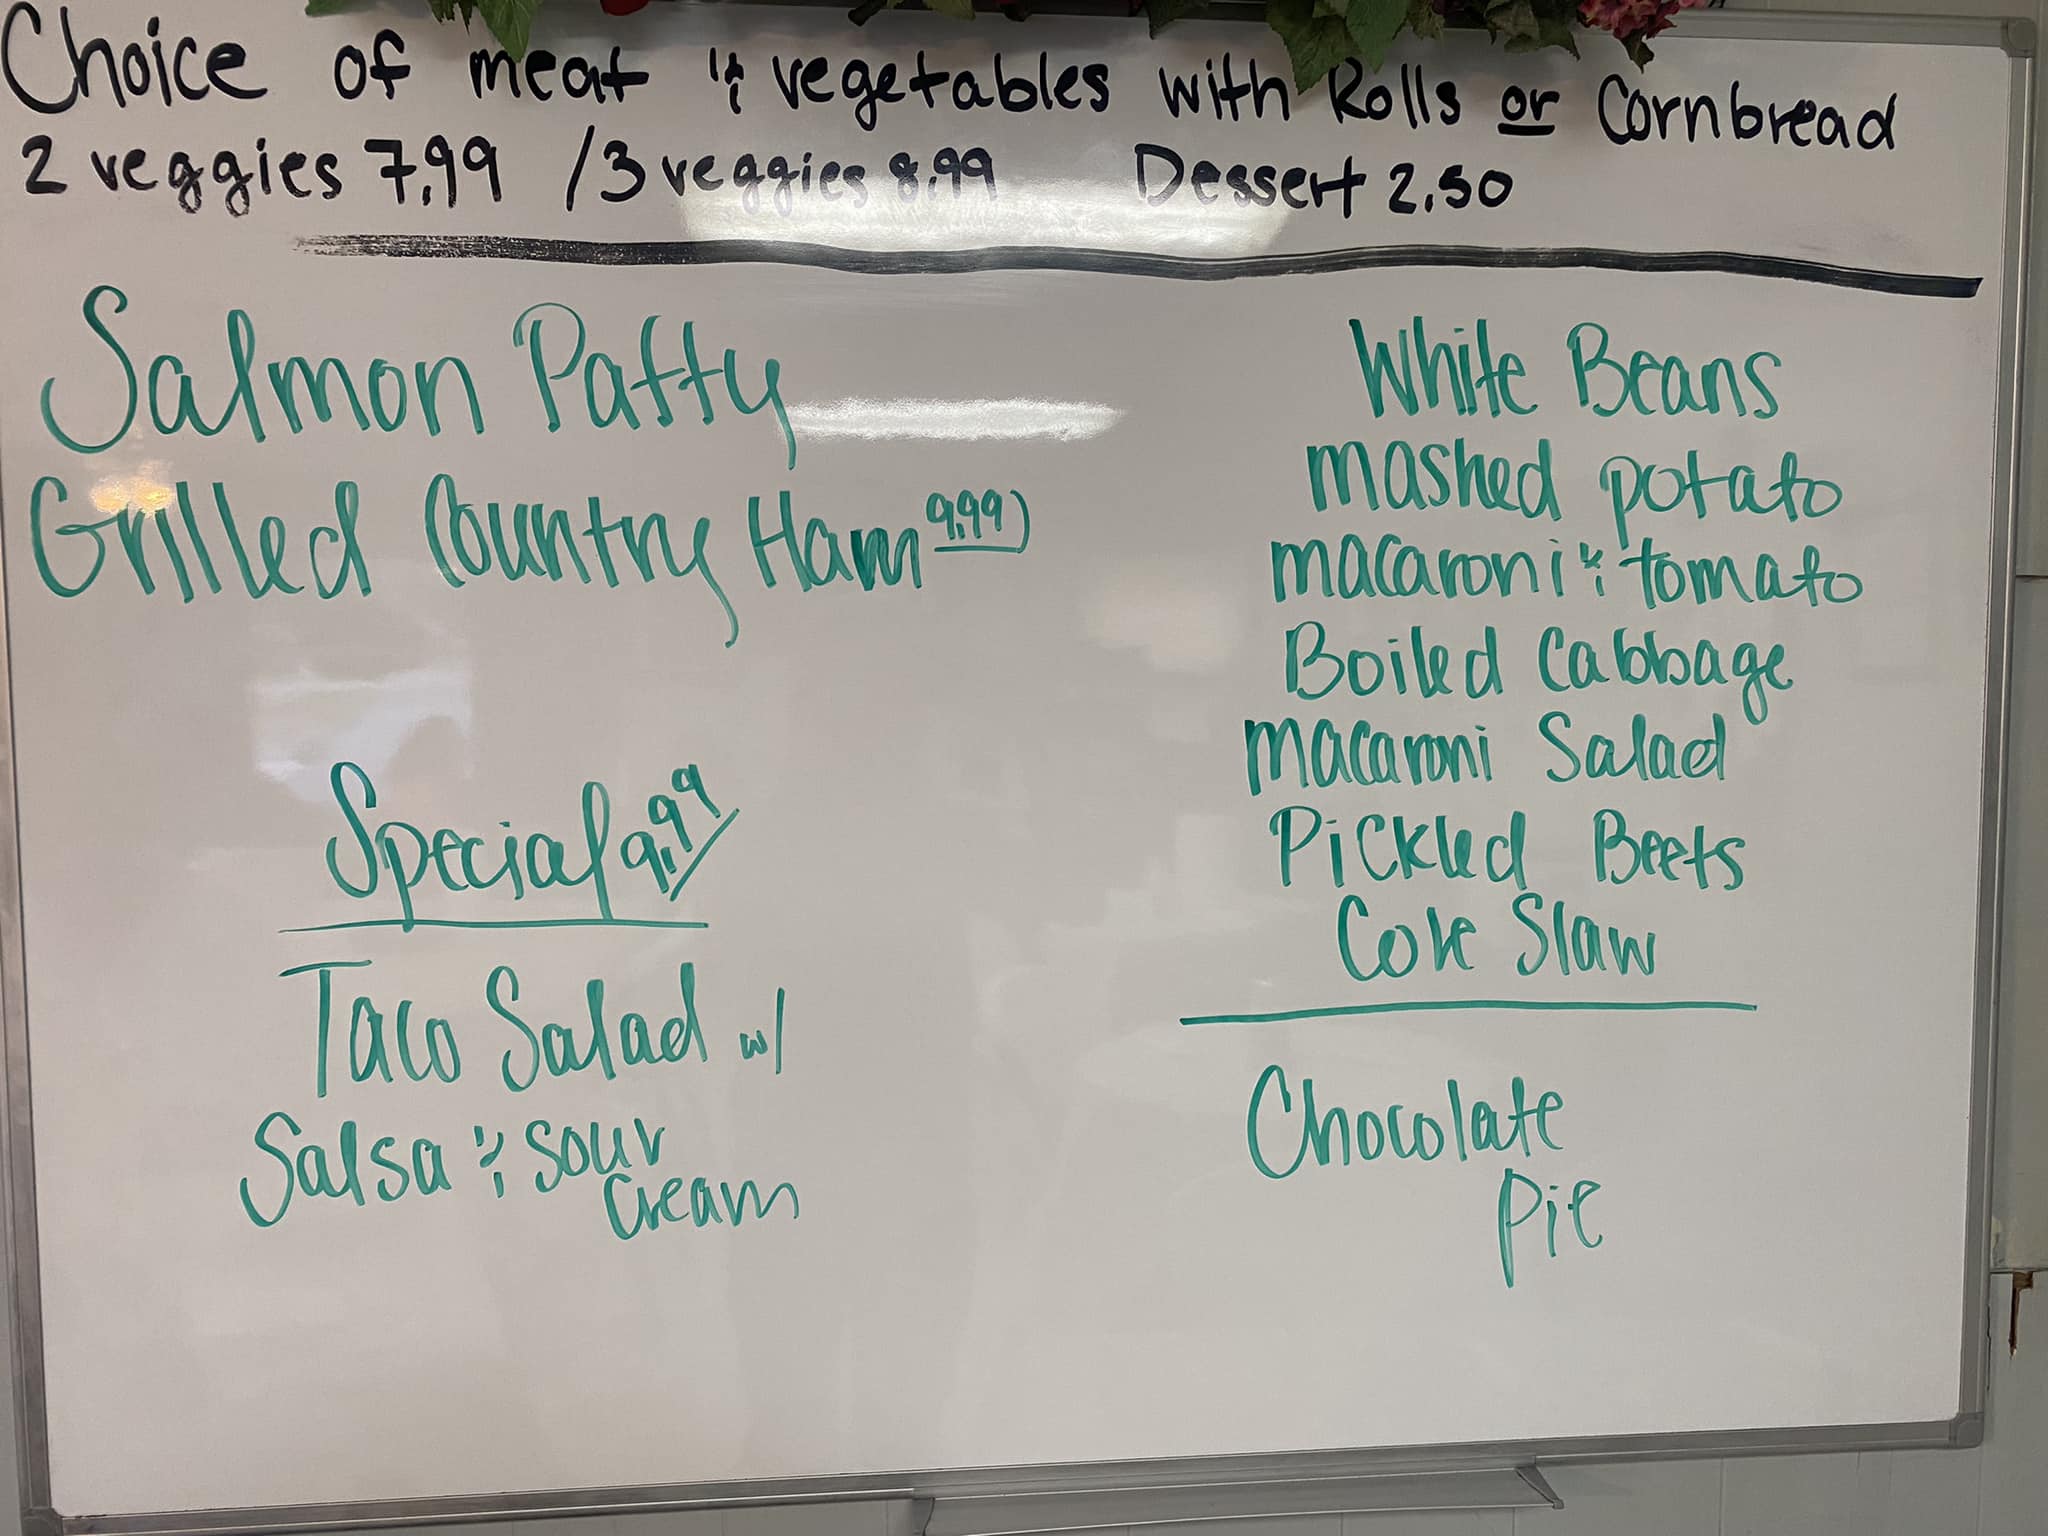 Choice of meat & vegetables with Rolls or Cornbread
2 veggies 7.99 / 3 veggies 8.99 Dessert 2.50
Salmon Patty
Grilled Country Ham 9.99
Special 9.99
Taco Salad w/
Salsa & Sour
Cream
White Beans
mashed potato
macaroni & tomato
Boiled Cabbage
macaroni Salad
Pickled Beets
Cole Slaw
Chocolate
Pie